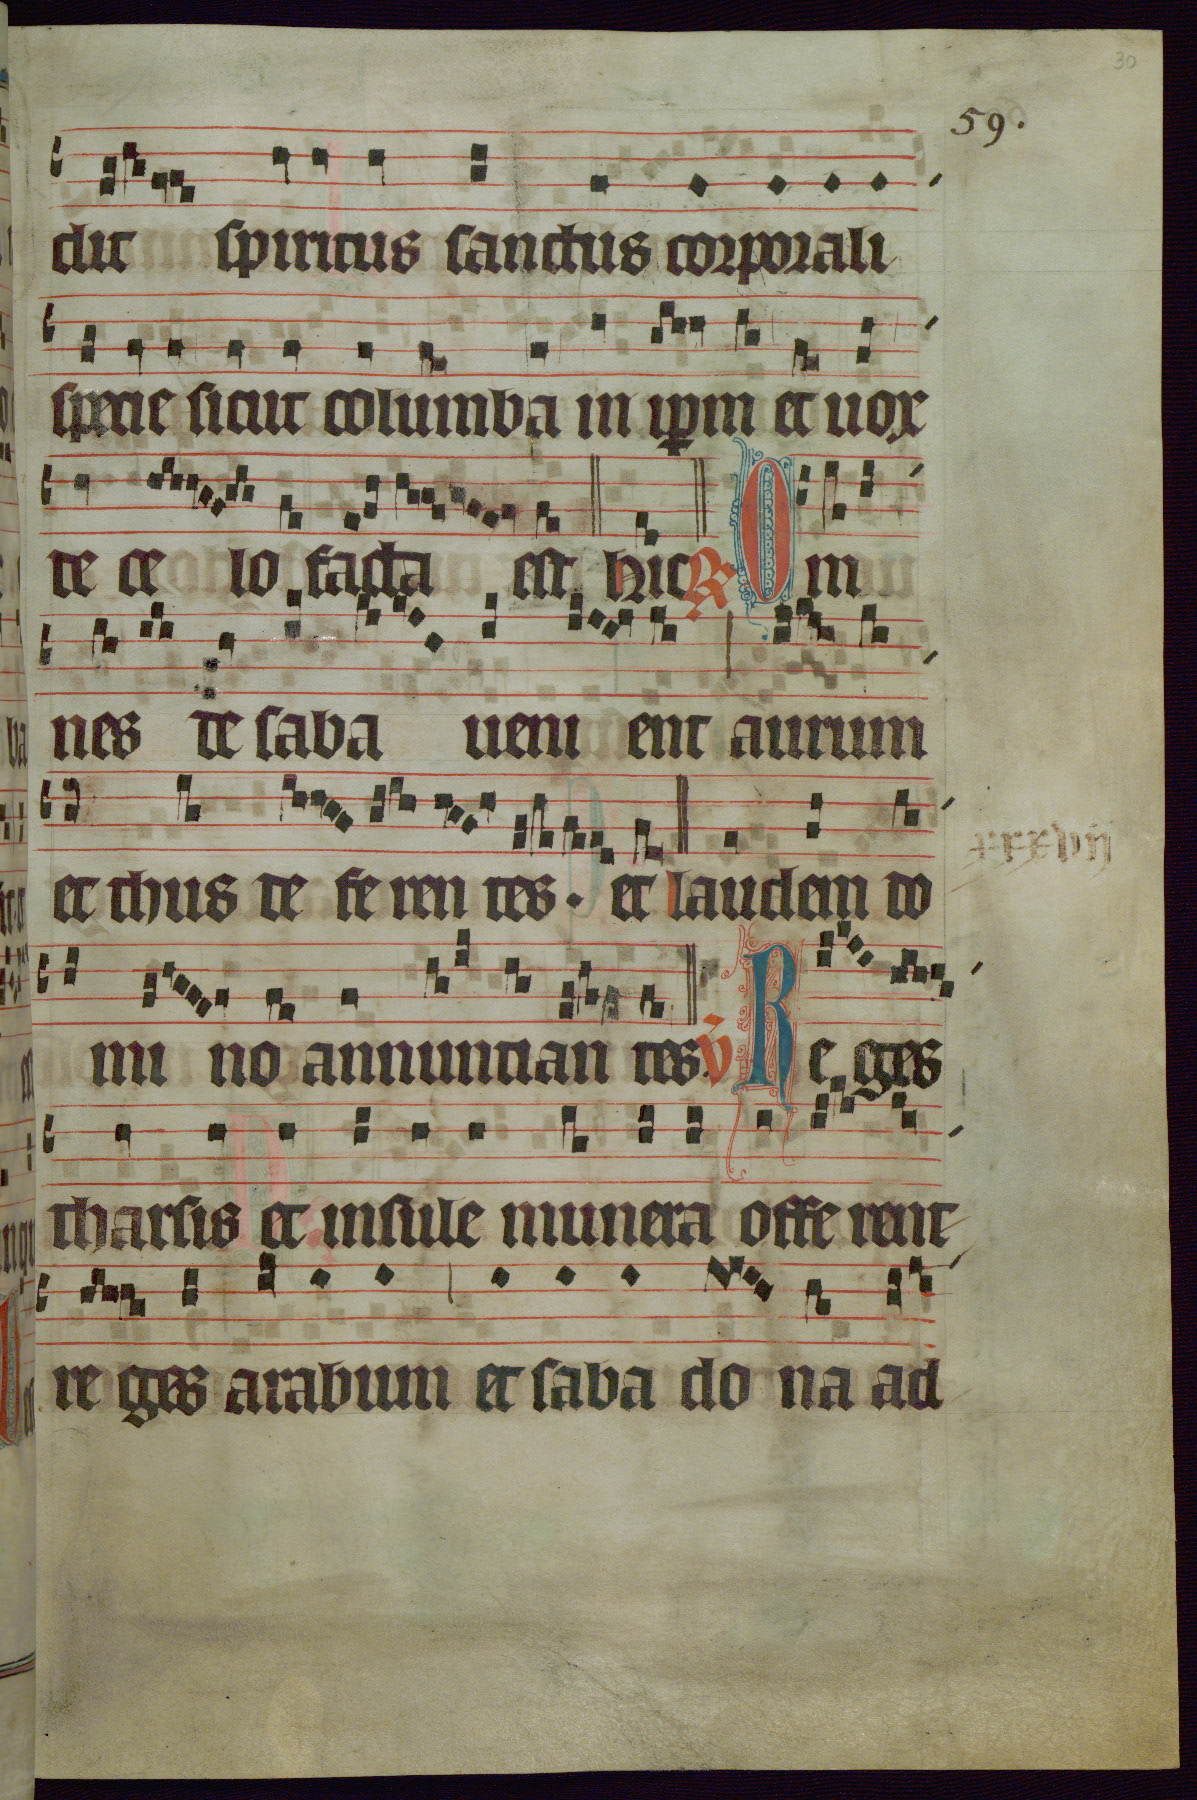 30
59.
dit spiritus sanctus corporali
specie sicut columba in ipm et uox
de ce lo facta est hic R O m
nes de saba ueni ent aurum
et thus de fe ren tes. et laudem do
xxxvij
mi no annuntian tes. V Re ges
tharsis et insule munera offe rent
re ges arabum et saba do na ad